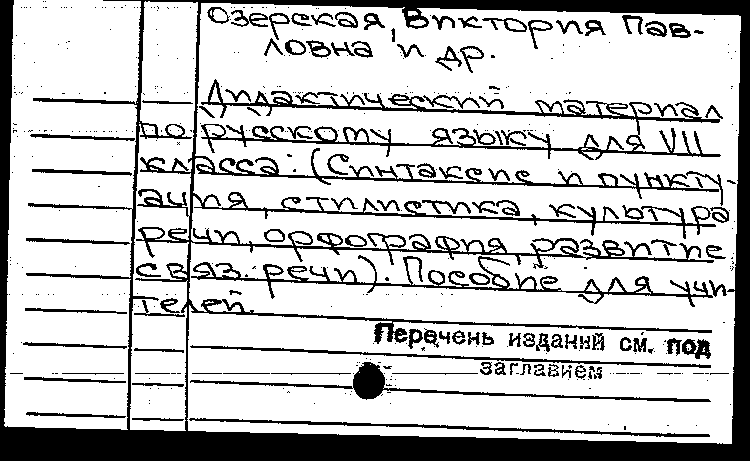 Озерская, Виктория Пав-
ловна и др.
Дидактический материал
по русскому языку для VII
класса: (Синтаксис и пункту-
ация, стилистика, культура
речи, орфография, развитие
связ. речи). Пособие для учи-
телей.
Перечень изданий см. под
заглавием